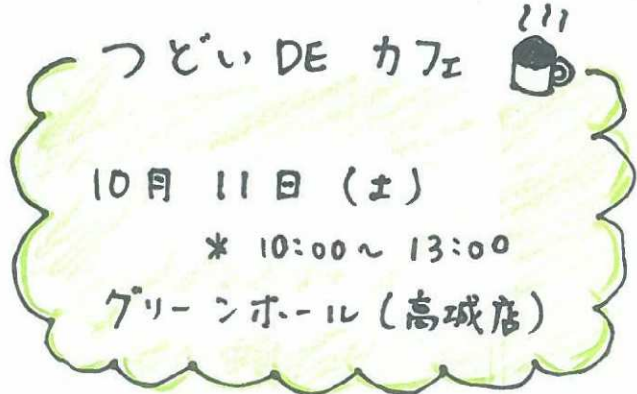 つどい DE カフェ
10月 11日 (土)
* 10:00~ 13:00
グリーンホール (高城店)